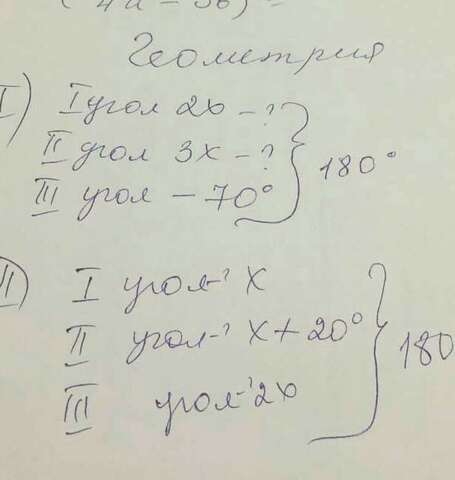 (4a - 5b) =
Геометрия
I) I угол 2x - ?
II угол 3x - ?
III угол - 70°
180°
II) I угол-? x
II угол-? x + 20°
III угол-? 2x
180